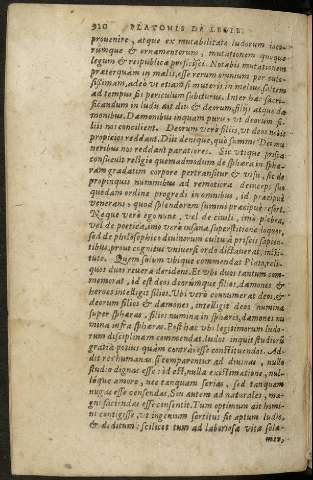 910 PLATONIS DE LEGIB.
prouenire, atque ex mutabilitate ludorum ioco-
rumque & ornamentorum, mutationem quoque
legum & reipublicæ proficisci. Notabis mutationem
præterquam in malis, esse rerum omnium per
sissimam, adeò ut etiamsi muteris in melius, saltem
ad tempus sis periculum subiturus. Inter hæc sacri-
ficandum in ludis ait diis & deorum filiis atque dæ
monibus. Dæmonibus inquam puris, ut deorum fi-
liis nos concilient. Deorum verò filiis, ut deos nobis
propicios reddant. Diis denique, quo summi Dei nu
neribus nos reddant paratiores. Sic utique
religio quemadmodum de sphæra in sphæ-
ram gradatim corpore pertransitur & visu, sic de
propinquis numinibus ad remotiora deinceps suo
quodam ordine progredi in omnibus, id præcipuè
venerans, quod splendorem summi præcipuè refert.
Neque verò ego nunc, vel de ciuili, imò plebea,
vel de poetica, imò verò insana superstitione loquor,
sed de philosophico diuinorum cultu à priscis sapien-
tibus, prius cognitus vniuersi ordo dictauerit, insti-
tuto. Quem solum ubique commendat Plato, reli-
quos duos reuera deridens. Et ubi duos tantum com-
memorat, id est deos deorumque filios, dæmones &
heroes intelligit filios. Vbi verò connumerat deos, &
deorum filios & dæmones, intelligit deos numina
super sphæras, filios numina in sphæris, dæmones nu
mina infra sphæras. Post hæc vbi legitimorum ludo-
rum disciplinam commendat, ludos inquit studiorū
gratia potius quàm contrà esse constituendos. Ad-
dit res humanas si comparentur ad diuinas, nullo
studio dignas esse: id est, nulla existimatione, nul-
lóque amore, nec tanquam serias, sed tanquam
nugas esse censendas. Sin autem ad naturales, ma-
gni faciendas esse consentit. Tum optimum ait homi-
ni contigisse, ut ingenium sortitus sit aptum ludis,
& deditum: scilicet tum ad laboriosæ vitæ sola-
men,